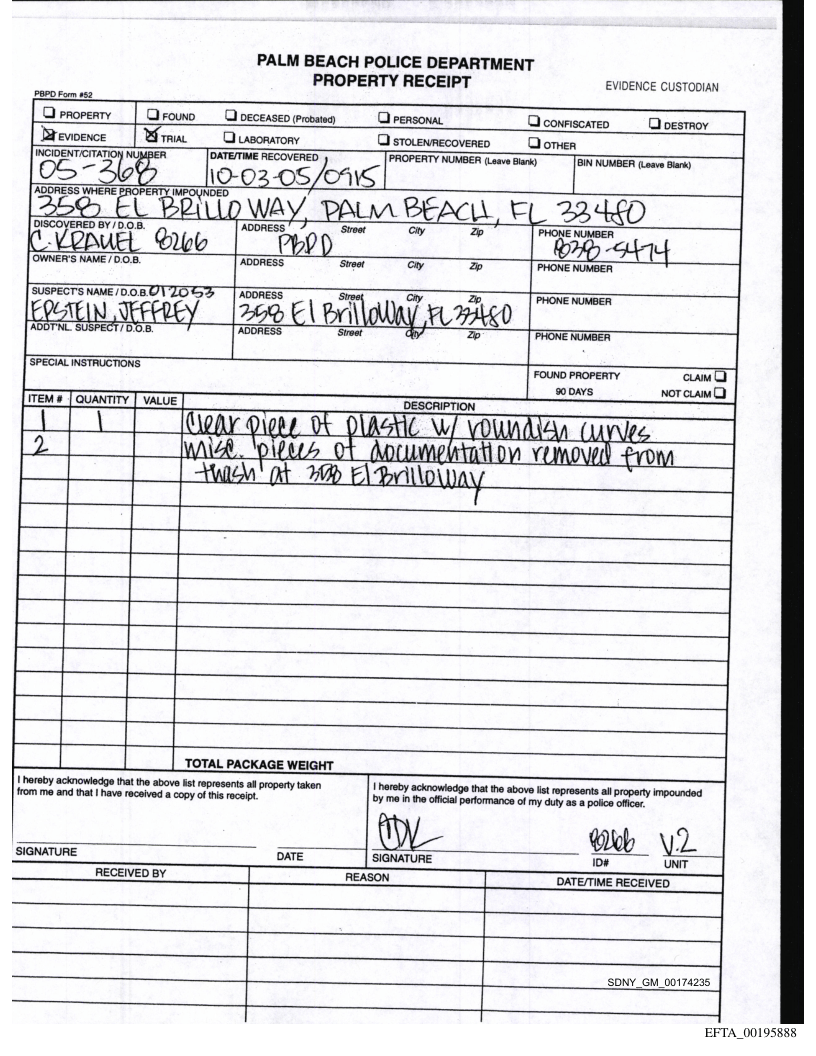 PALM BEACH POLICE DEPARTMENT
PROPERTY RECEIPT
EVIDENCE CUSTODIAN
PBPD Form #52
PROPERTY FOUND DECEASED (Probated) PERSONAL CONFISCATED DESTROY
EVIDENCE TRIAL LABORATORY STOLEN/RECOVERED OTHER
INCIDENT/CITATION NUMBER DATE/TIME RECOVERED PROPERTY NUMBER (Leave Blank) BIN NUMBER (Leave Blank)
05-368 10-03-05/0915
ADDRESS WHERE PROPERTY IMPOUNDED
358 EL BRILLO WAY, PALM BEACH, FL 33480
DISCOVERED BY / D.O.B. ADDRESS Street City Zip PHONE NUMBER
C. KRAUEL 8266 PBPD 838-5474
OWNER'S NAME / D.O.B. ADDRESS Street City Zip PHONE NUMBER
SUSPECT'S NAME / D.O.B. 012053 ADDRESS Street City Zip PHONE NUMBER
EPSTEIN, JEFFREY 358 El Brillo Way, FL 33480
ADDT'NL. SUSPECT / D.O.B. ADDRESS Street City Zip PHONE NUMBER
SPECIAL INSTRUCTIONS FOUND PROPERTY CLAIM
90 DAYS NOT CLAIM
ITEM # QUANTITY VALUE DESCRIPTION
1 1 Clear piece of plastic w/ roundish curves
2 misc. pieces of documentation removed from
trash at 358 El Brillo Way
TOTAL PACKAGE WEIGHT
I hereby acknowledge that the above list represents all property taken
from me and that I have received a copy of this receipt.
I hereby acknowledge that the above list represents all property impounded
by me in the official performance of my duty as a police officer.
8266 V.2
SIGNATURE DATE SIGNATURE ID# UNIT
RECEIVED BY REASON DATE/TIME RECEIVED
SDNY_GM_00174235
EFTA_00195888